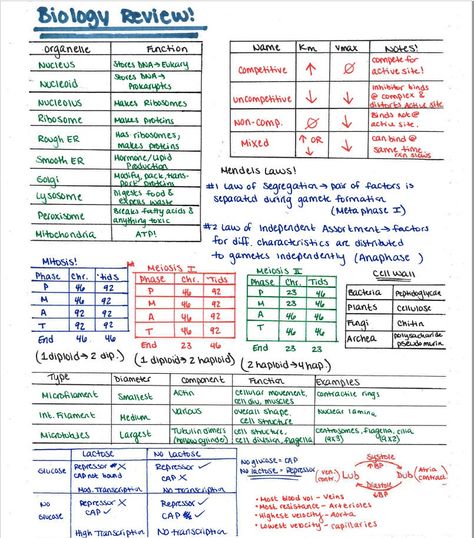 Biology Review!
Organelle Function
Nucleus Stores DNA→Eukary
Nucleoid Stores DNA→ Prokaryotes
Nucleolus Makes Ribosomes
Ribosome Makes proteins
Rough ER Has ribosomes, makes proteins
Smooth ER Hormone/Lipid Production
Golgi Modify, pack, transport proteins
Lysosome Digests food & expels waste
Peroxisome Breaks fatty acids & anything toxic
Mitochondria ATP!
Name Km Vmax Notes!
Competitive ↑ Ø compete for active site!
Uncompetitive ↓ ↓ inhibitor binds @ complex & distorts active site
Non-comp. Ø ↓ Binds not @ active site.
Mixed ↑ OR ↓ ↓ can bind @ same time rxn slows
Mendels Laws!
#1 Law of Segregation→ pair of factors is
separated during gamete formation
(Metaphase I)
#2 Law of Independent Assortment→ factors
for diff. characteristics are distributed
to gametes independently (Anaphase)
Mitosis!
Phase Chr. 'Tids
P 46 92
M 46 92
A 92 92
T 92 92
End 46 46
(1 diploid→2 dip.)
Meiosis I
Phase Chr. 'Tids
P 46 92
M 46 92
A 46 92
T 46 92
End 23 46
(1 diploid→ 2 haploid)
Meiosis II
Phase Chr. 'Tids
P 23 46
M 23 46
A 46 46
T 46 46
End 23 23
(2 haploid→4 hap.)
Cell Wall
Bacteria Peptidoglycan
Plants Cellulose
Fungi Chitin
Archea polysaccharide pseudomurin
Type Diameter Component Function Examples
Microfilament Smallest Actin cellular movement, cell div, muscles contractile rings
Int. Filament Medium Various overall shape, cell structure Nuclear lamina
Microtubules Largest Tubulin dimers cell structure, cell division, flagella centrosomes, flagella, cilia
(9x3) (9x2)
Lactose No Lactose
Glucose Repressor X Repressor ✓
CAP not bound CAP X
Mod. Transcription No Transcription
No Glucose Repressor X Repressor ✓
CAP ✓ CAP ✓
High Transcription No transcription
No glucose = CAP
No lactose = Repressor
Systole
↑BP
(ven. contr.) Lub Dub (Atria contract.)
Diastole
↓BP
• Most blood vol - Veins
• Most resistance - Arterioles
• Highest velocity - Aorta
• Lowest velocity - capillaries